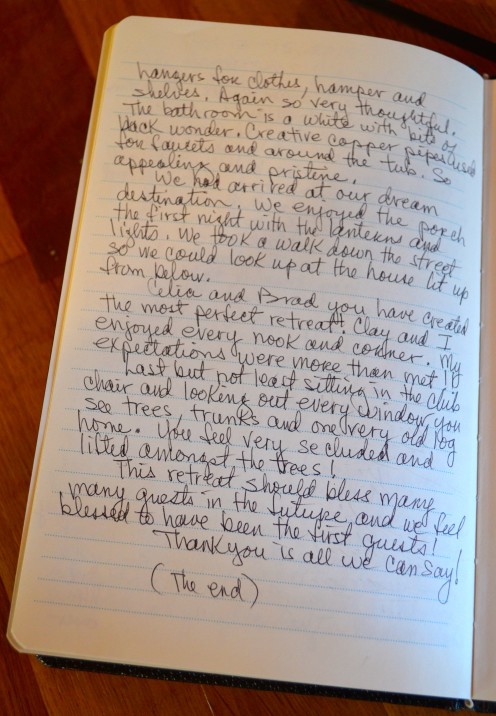 hangers for clothes, hamper and
shelves. Again so very thoughtful.
The bathroom is a white with bits of
black wonder. Creative copper pipes used
for faucets and around the tub. So
appealing and pristine.
We had arrived at our dream
destination. We enjoyed the porch
the first night with the lanterns and
lights. We took a walk down the street
so we could look up at the house lit up
from below.
Celia and Brad you have created
the most perfect retreat! Clay and I
enjoyed every nook and corner. My
expectations were more than met!!
Last but not least sitting in the club
chair and looking out every window you
see trees, trunks and one very old log
home. You feel very secluded and
lifted amongst the trees!
This retreat should bless many
many guests in the future, and we feel
blessed to have been the first guests!
Thank you is all we can say!
(The end)